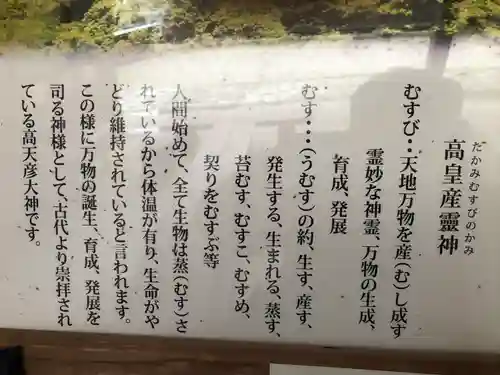 だかみむすびのかみ
高皇産靈神
むすび‥天地万物を産(む)し成す
霊妙な神霊、万物の生成、
育成、発展
むす…(うむす)の約、生す、産す、
発生する、生まれる、蒸す、
苔むす、むすこ、むすめ、
契りをむすぶ等
人間始めて、全て生物は蒸(むす)さ
れているから体温が有り、生命がや
どり維持されていると言われます。
この様に万物の誕生、育成、発展を
司る神様として、古代より崇拝され
ている高天彦大神です。